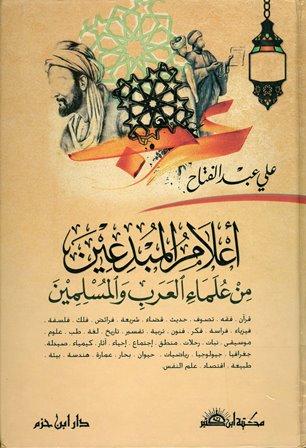 علي عبد الفتاح
أعلام المبدعين
من علماء العرب والمسلمين
قرآن . فقه . تصوف . حديث . قضاء . شريعة . فرائض . فلك . فلسفة .
فيزياء . فراسة . فكر . فنون . تربية . تفسير . تاريخ . لغة . طب . علوم .
موسيقى . نبات . رحلات . منطق . إجتماع . إحياء . آثار . كيمياء . صيدلة .
جغرافيا . جيولوجيا . رياضيات . حيوان . بحار . عمارة . هندسة . بيئة .
طبيعة . اقتصاد . علم النفس .
مكتبة ابن كثير
دار ابن حزم